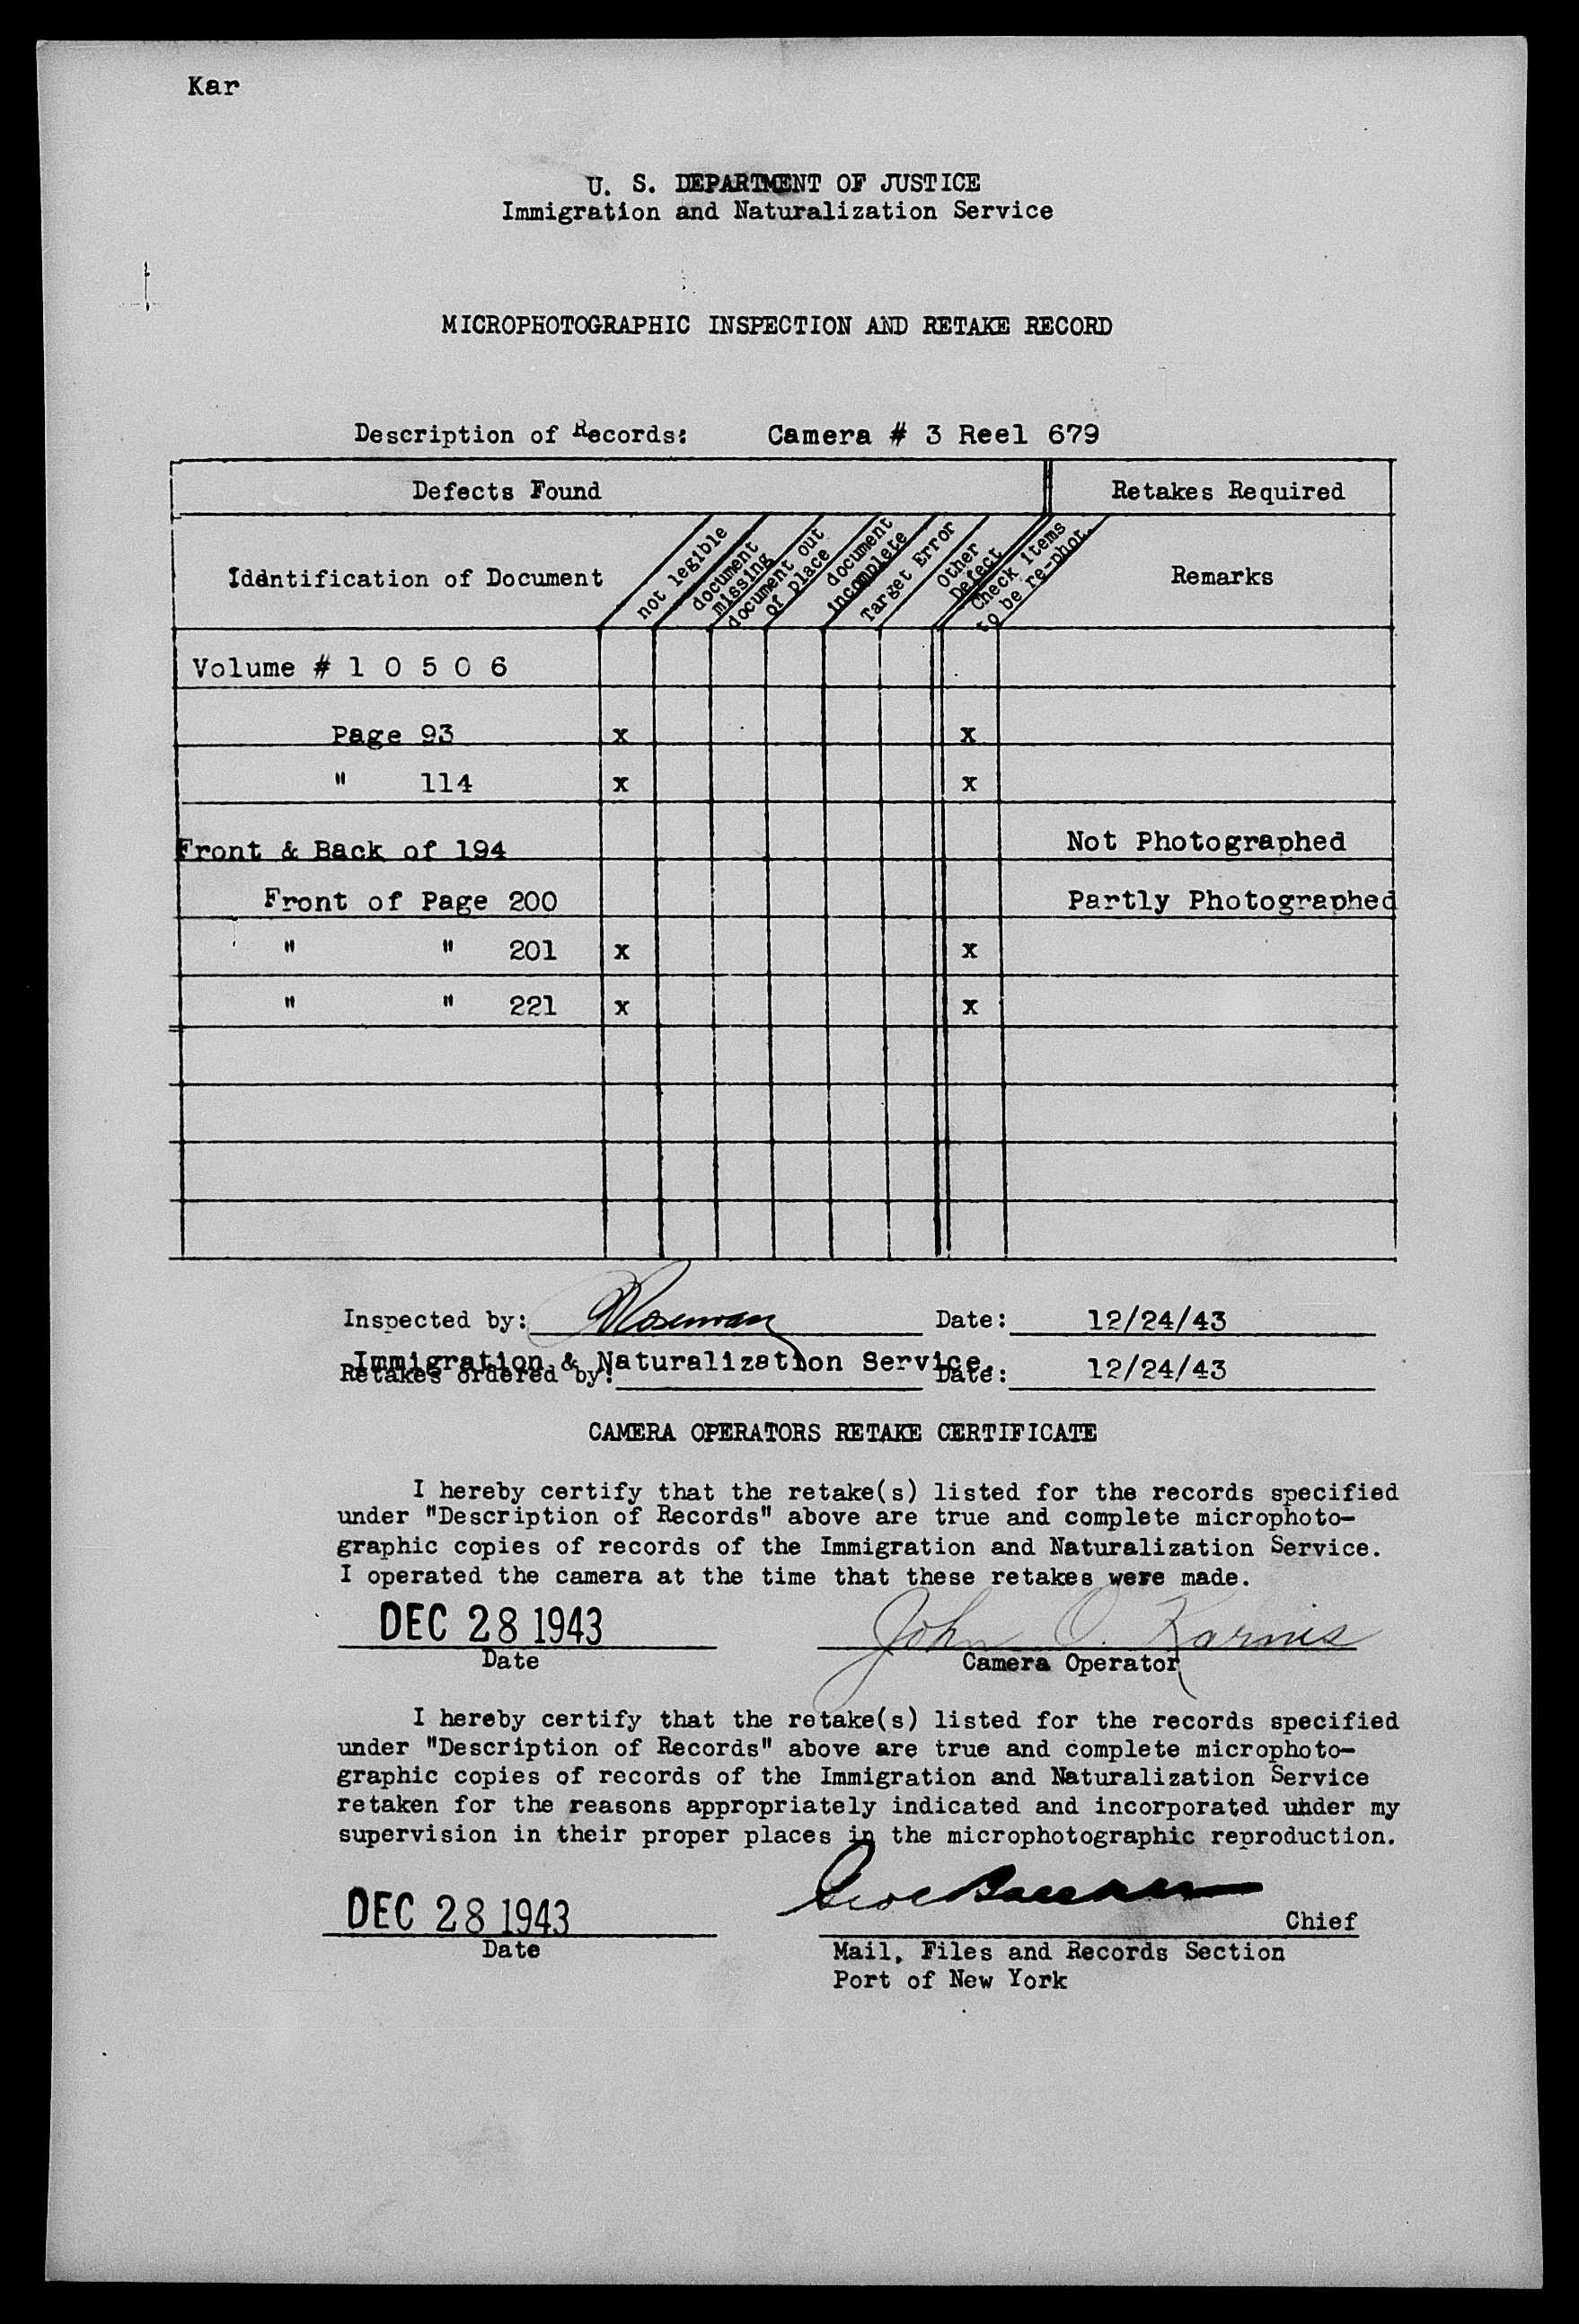 Kar
U. S. DEPARTMENT OF JUSTICE
Immigration and Naturalization Service
MICROPHOTOGRAPHIC INSPECTION AND RETAKE RECORD
Description of Records: Camera # 3 Reel 679
Defects Found Retakes Required
Identification of Document not legible document missing document out of place document incomplete Target Error Other Defect Check items to be re-phot. Remarks
Volume # 1 0 5 0 6
Page 93 x x
" 114 x x
Front & Back of 194 Not Photographed
Front of Page 200 Partly Photographed
" " 201 x x
" " 221 x x
Inspected by: Date: 12/24/43
Immigration & Naturalization Service.
Retakes ordered by: Date: 12/24/43
CAMERA OPERATORS RETAKE CERTIFICATE
I hereby certify that the retake(s) listed for the records specified
under "Description of Records" above are true and complete microphoto-
graphic copies of records of the Immigration and Naturalization Service.
I operated the camera at the time that these retakes were made.
DEC 28 1943 John O. Karnis
Date Camera Operator
I hereby certify that the retake(s) listed for the records specified
under "Description of Records" above are true and complete microphoto-
graphic copies of records of the Immigration and Naturalization Service
retaken for the reasons appropriately indicated and incorporated uhder my
supervision in their proper places in the microphotographic reproduction.
DEC 28 1943 Chief
Date Mail, Files and Records Section
Port of New York